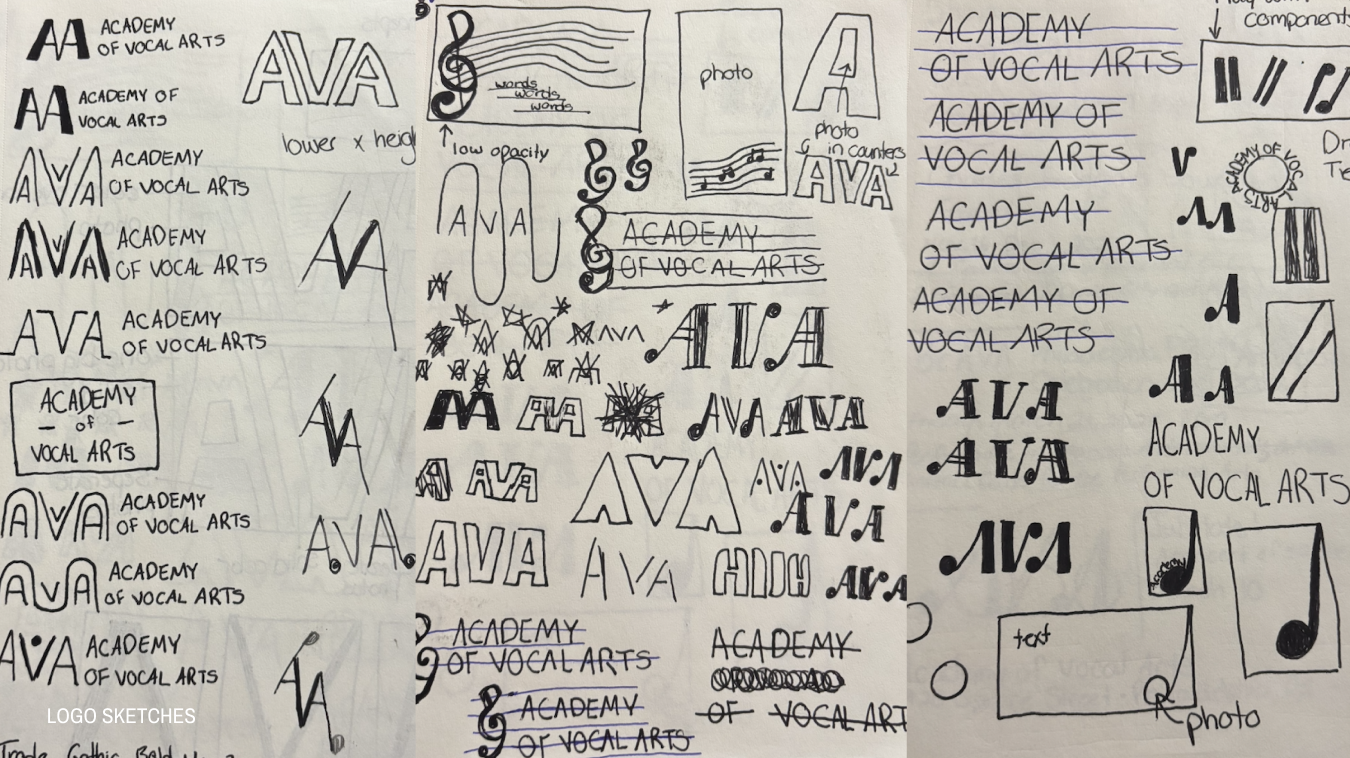 AA ACADEMY
OF VOCAL ARTS
AA ACADEMY OF
VOCAL ARTS
AVA ACADEMY
OF VOCAL ARTS
AVA ACADEMY
OF VOCAL ARTS
AVA ACADEMY
OF VOCAL ARTS
ACADEMY
- of -
VOCAL ARTS
AVA ACADEMY
OF VOCAL ARTS
AVA ACADEMY
OF VOCAL ARTS
AVA ACADEMY
OF VOCAL ARTS
LOGO SKETCHES
Trade Gothic Bold
AVA
lower x heigh
AVA
AVA
AVA
AVA
words
words
words
low opacity
photo
A
photo
in counters
AVA
AVA
ACADEMY
OF VOCAL ARTS
AVA
AVA
AVA
AVA
AVA
AVA
AVA
AVA
AVA
AVA
AVA
AVA
AVA
ACADEMY
OF VOCAL ARTS
ACADEMY
OF VOCAL ARTS
ACADEMY
OF VOCAL ART
ACADEMY
OF VOCAL ARTS
ACADEMY OF
VOCAL ARTS
ACADEMY
OF VOCAL ARTS
ACADEMY OF
VOCAL ARTS
AVA
AVA
AVA
components
V
ACADEMY OF VOCAL ARTS
A
A A
ACADEMY
OF VOCAL ARTS
text
photo